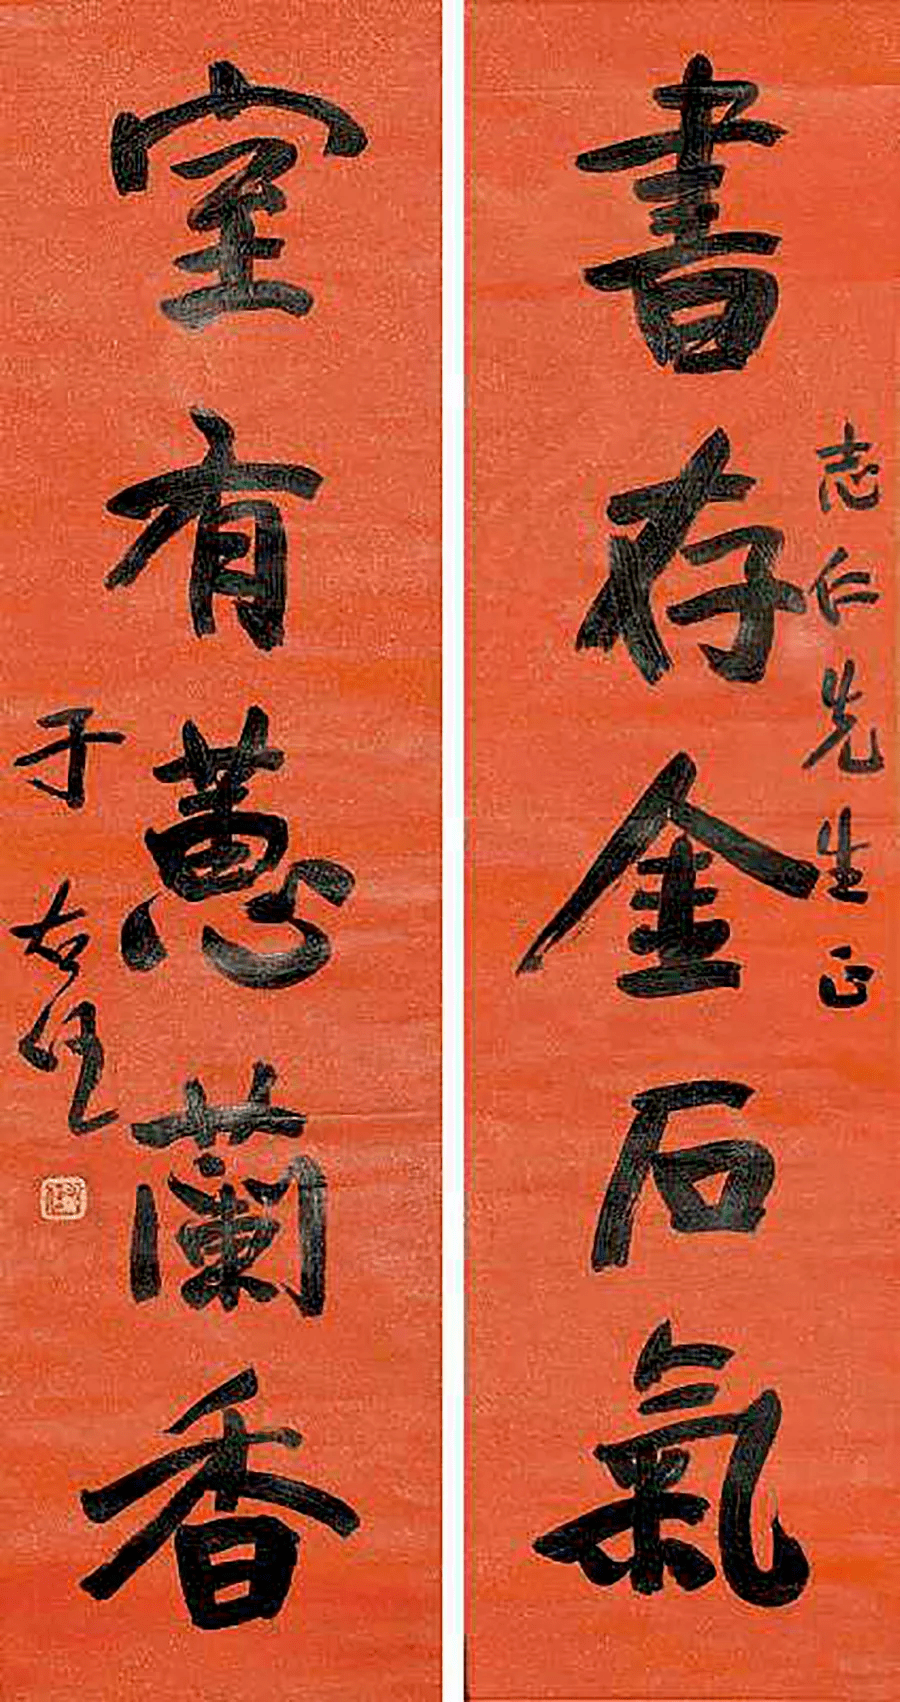 志仁先生正
書存金石氣
室有蕙蘭香
于右任